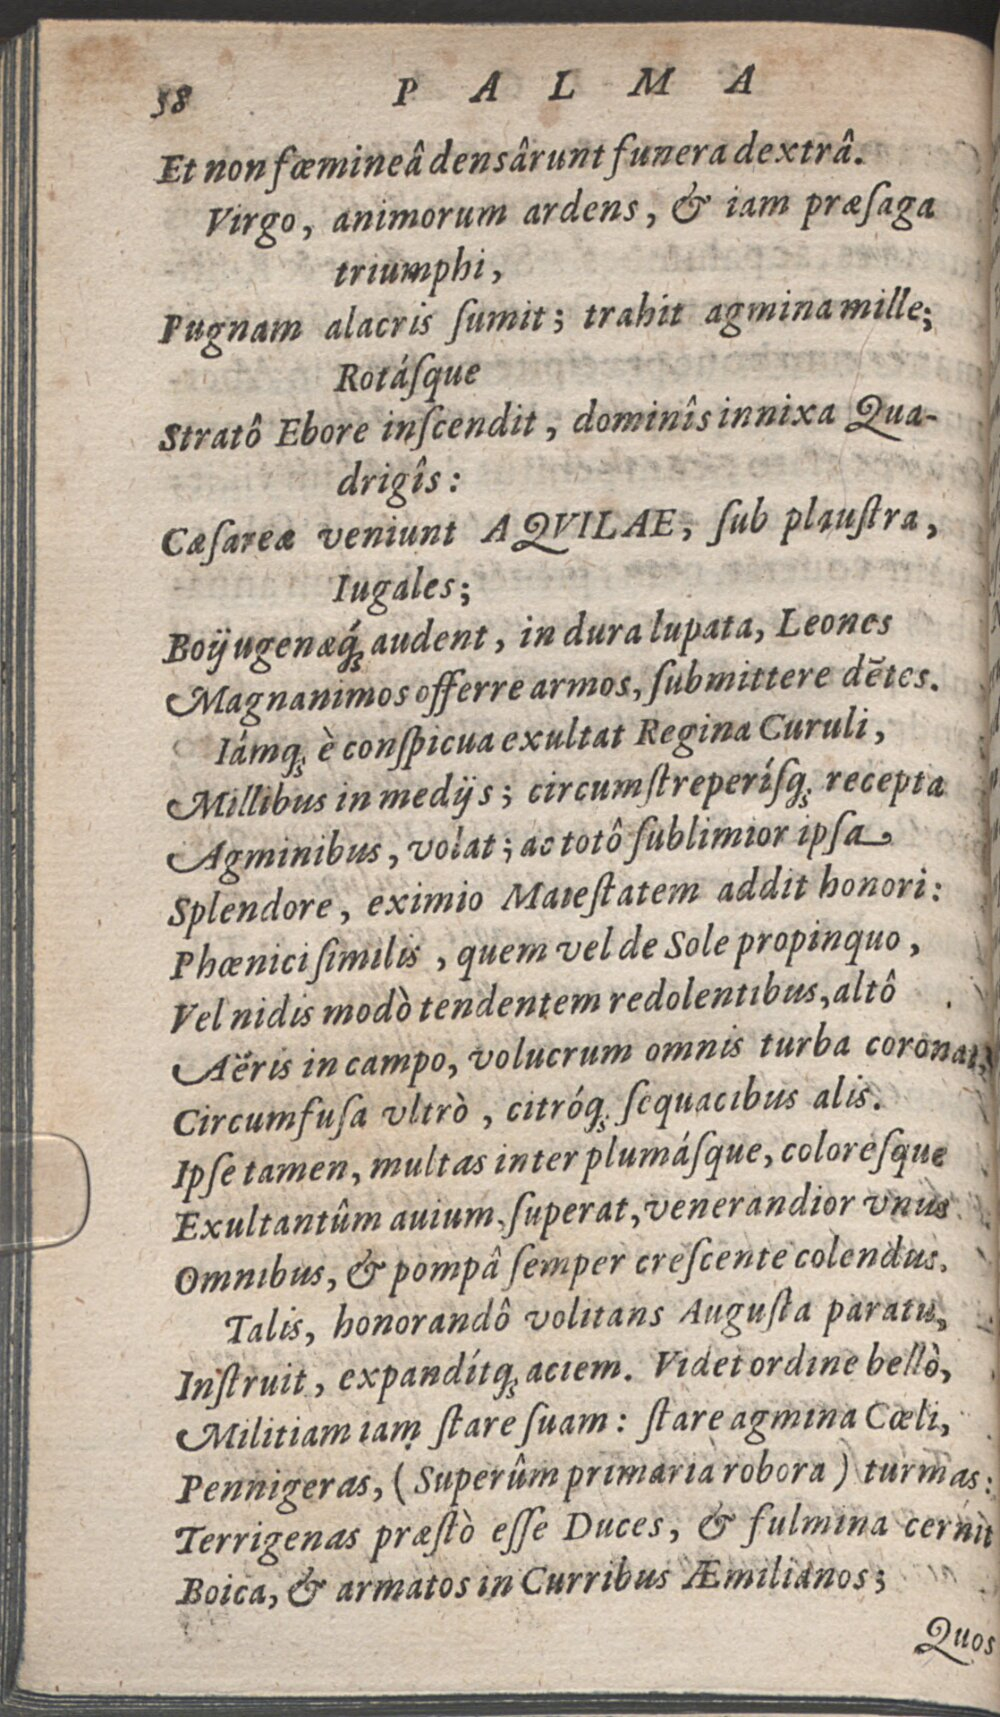 58 PALMA
Et non fœmineâ densârunt funera dextrâ.
Virgo, animorum ardens, & iam præſaga
triumphi,
Pugnam alacris ſumit; trahit agmina mille;
Rotáſque
Stratô Ebore inſcendit, dominîs innixa Qua-
drigîs:
Cæſareæ veniunt AQVILAE, ſub plauſtra,
Iugales;
Boijugenæq́; audent, in dura lupata, Leones
Magnanimos offerre armos, ſubmittere dētes.
Iámq; è conſpicua exultat Regina Curuli,
Millibus in medijs; circumſtreperíſq; recepta
Agminibus, volat; ac totô ſublimior ipſa
Splendore, eximio Maieſtatem addit honori:
Phœnici ſimilis, quem vel de Sole propinquo,
Vel nidis modò tendentem redolentibus, altô
Aëris in campo, volucrum omnis turba coronat,
Circumfuſa vltrò, citróq; ſequacibus alis.
Ipſe tamen, multas inter plumáſque, coloreſque
Exultantûm auium, ſuperat, venerandior vnus
Omnibus, & pompâ ſemper creſcente colendus.
Talis, honorandô volitans Auguſta paratu,
Inſtruit, expandítq; aciem. Videt ordine bellò,
Militiam iam ſtare ſuam: ſtare agmina Cœli,
Pennigeras, (Superûm primaria robora) turmas:
Terrigenas præſtò eſſe Duces, & fulmina cernit
Boica, & armatos in Curribus Æmilianos;
Quos